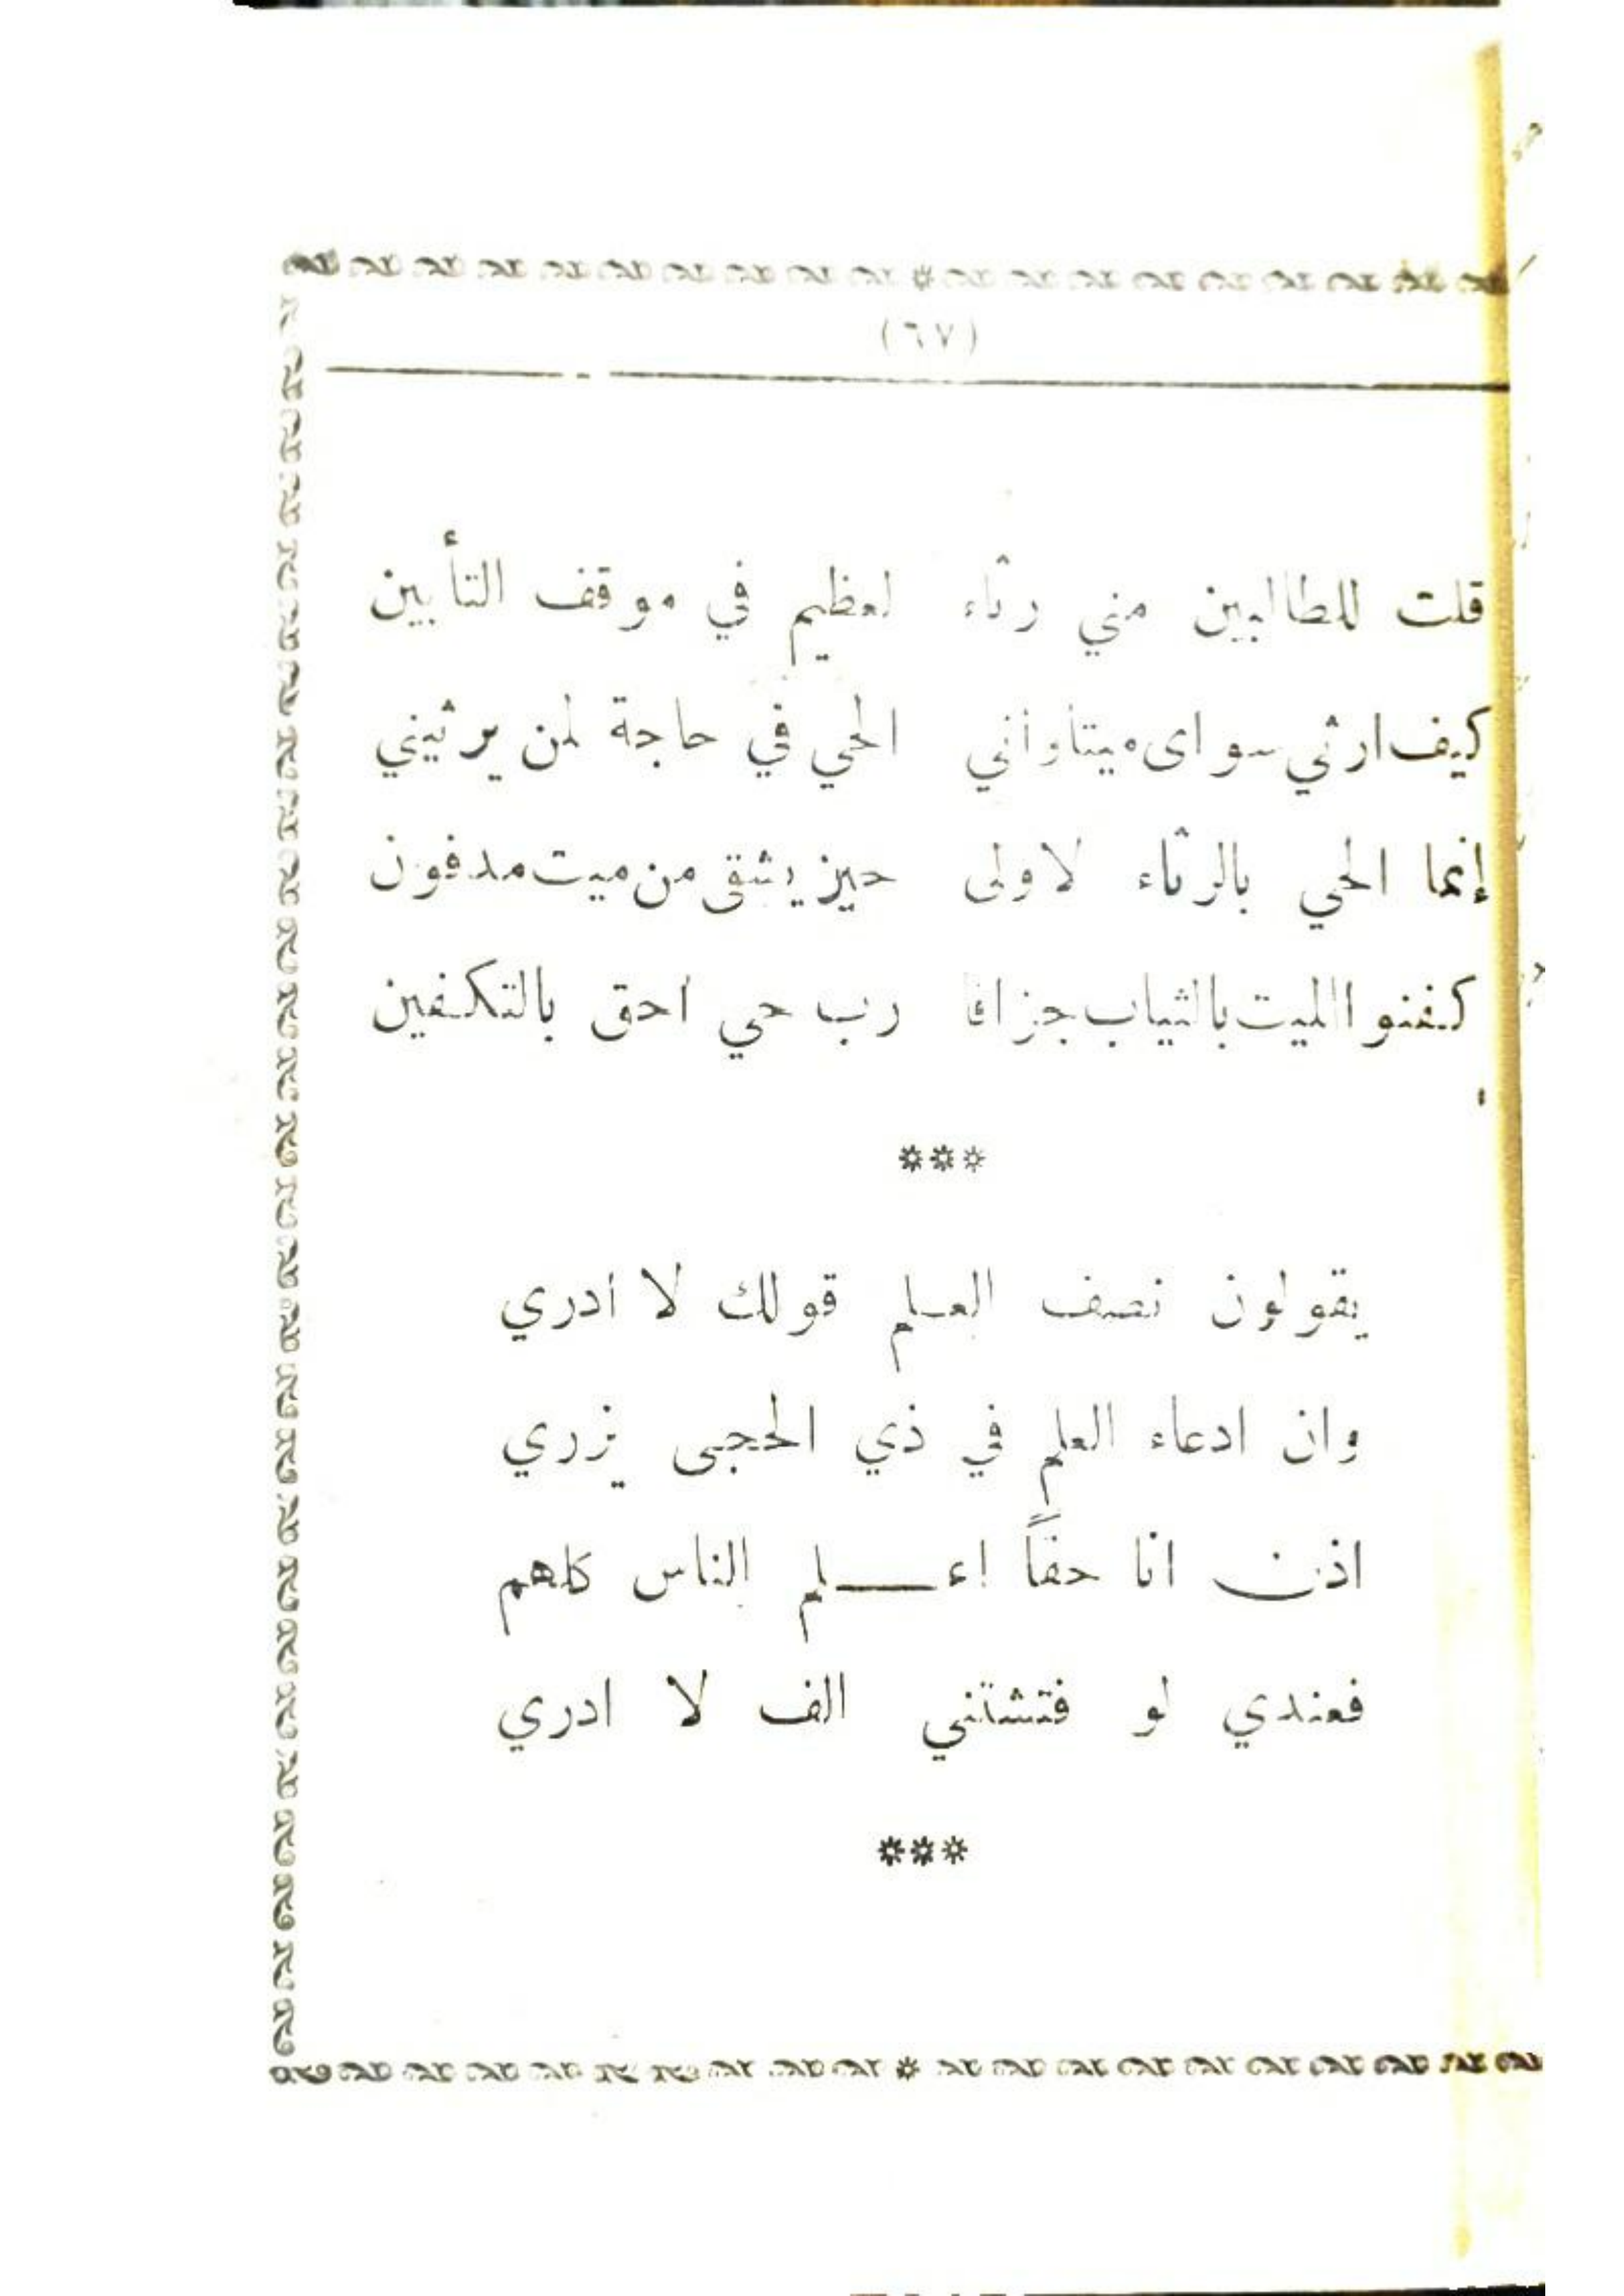 (٦٧)
قلت للطالبين مني رثاء لعظيم في موقف التأبين
كيف ارثي سواى ميتا وأني الحي في حاجة لمن يرثيني
إنما الحي بالرثاء لاولى حين يشقى من ميت مدفون
كفنوا الميت بالثياب جزافا رب حي احق بالتكفين
***
يقولون نصف العلم قولك لا أدري
وان ادعاء العلم في ذي الحجى يزري
اذن انا حقاً اعـــلم الناس كلهم
فعندي لو فتشتني الف لا ادري
***